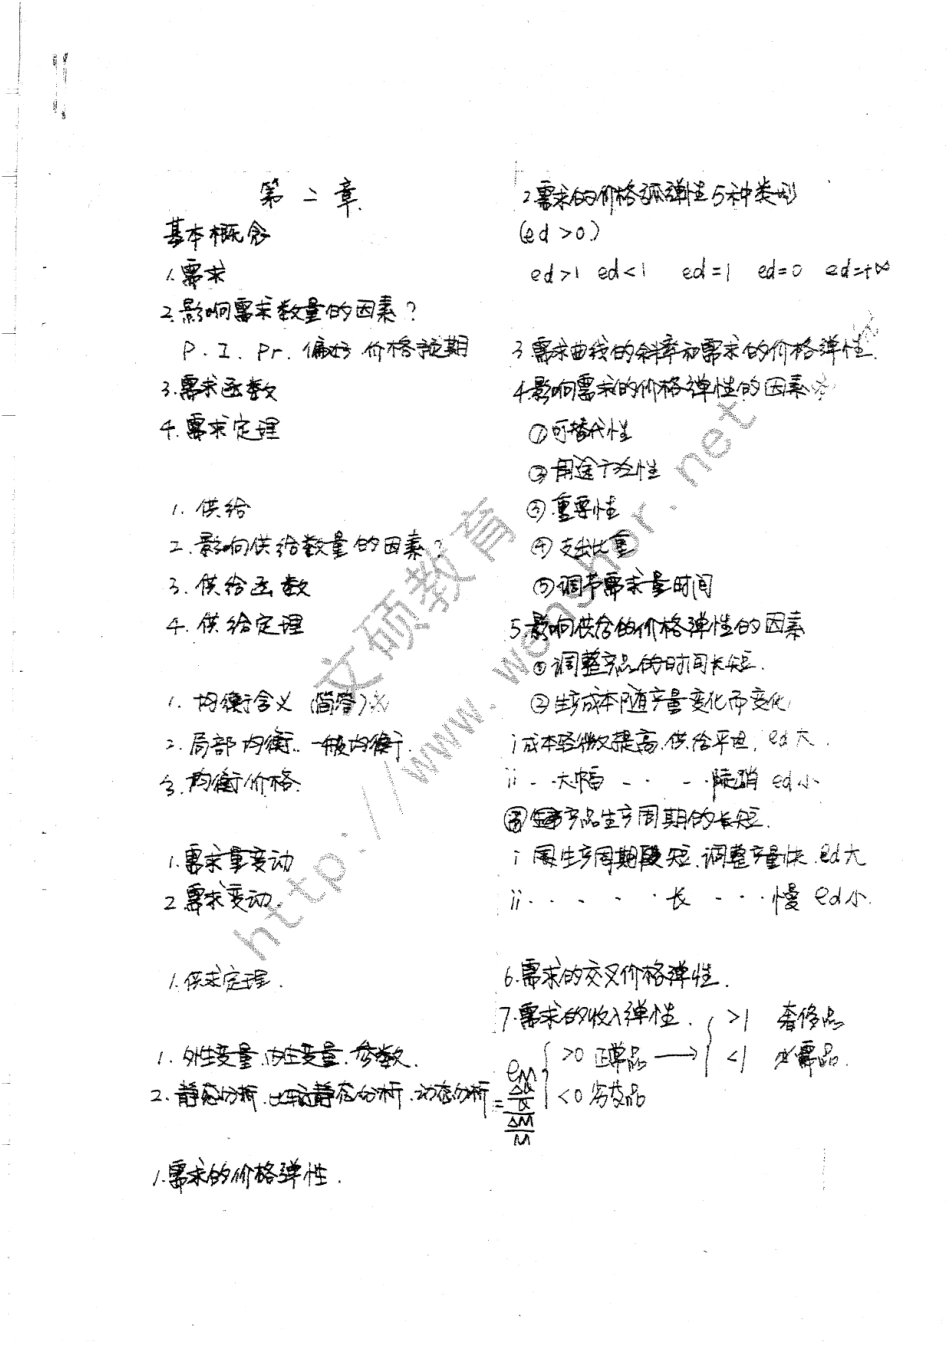 第二章
基本概念
1.需求
2.影响需求数量的因素?
P. I. Pr. 偏好 价格预期
3.需求函数
4.需求定理
1. 供给
2. 影响供给数量的因素?
3. 供给函数
4. 供给定理
1. 均衡含义 (简答)
2. 局部均衡. 一般均衡.
3. 均衡价格.
1.需求量变动
2 需求变动.
1.供求定理.
1. 外生变量.内生变量.参数.
2. 静态分析.比较静态分析.动态分析
1.需求的价格弹性.
2需求的价格弧弹性5种类形
(ed >0)
ed>1 ed<1 ed=1 ed=0 ed=+∞
3.需求曲线的斜率和需求的价格弹性.
4.影响需求的价格弹性的因素
①可替代性
②用途广泛性
③重要性
④支出比重
⑤调节需求量时间
5.影响供给的价格弹性的因素
①调整产品的时间长短.
②生产成本随产量变化而变化
i成本轻微提高.供给平坦, ed大.
ii. - 大幅 - . - -陡峭 ed小
③产品生产周期的长短.
i 生产周期短.调整产量快.ed大
ii. - . - . 长 - . . 慢 ed小.
6.需求的交叉价格弹性.
7.需求的收入弹性.
>1 奢侈品
eM >0 正常品 → <1 必需品.
= <0 劣效品
ΔM
M
文硕教育
http://www.wenshor.net